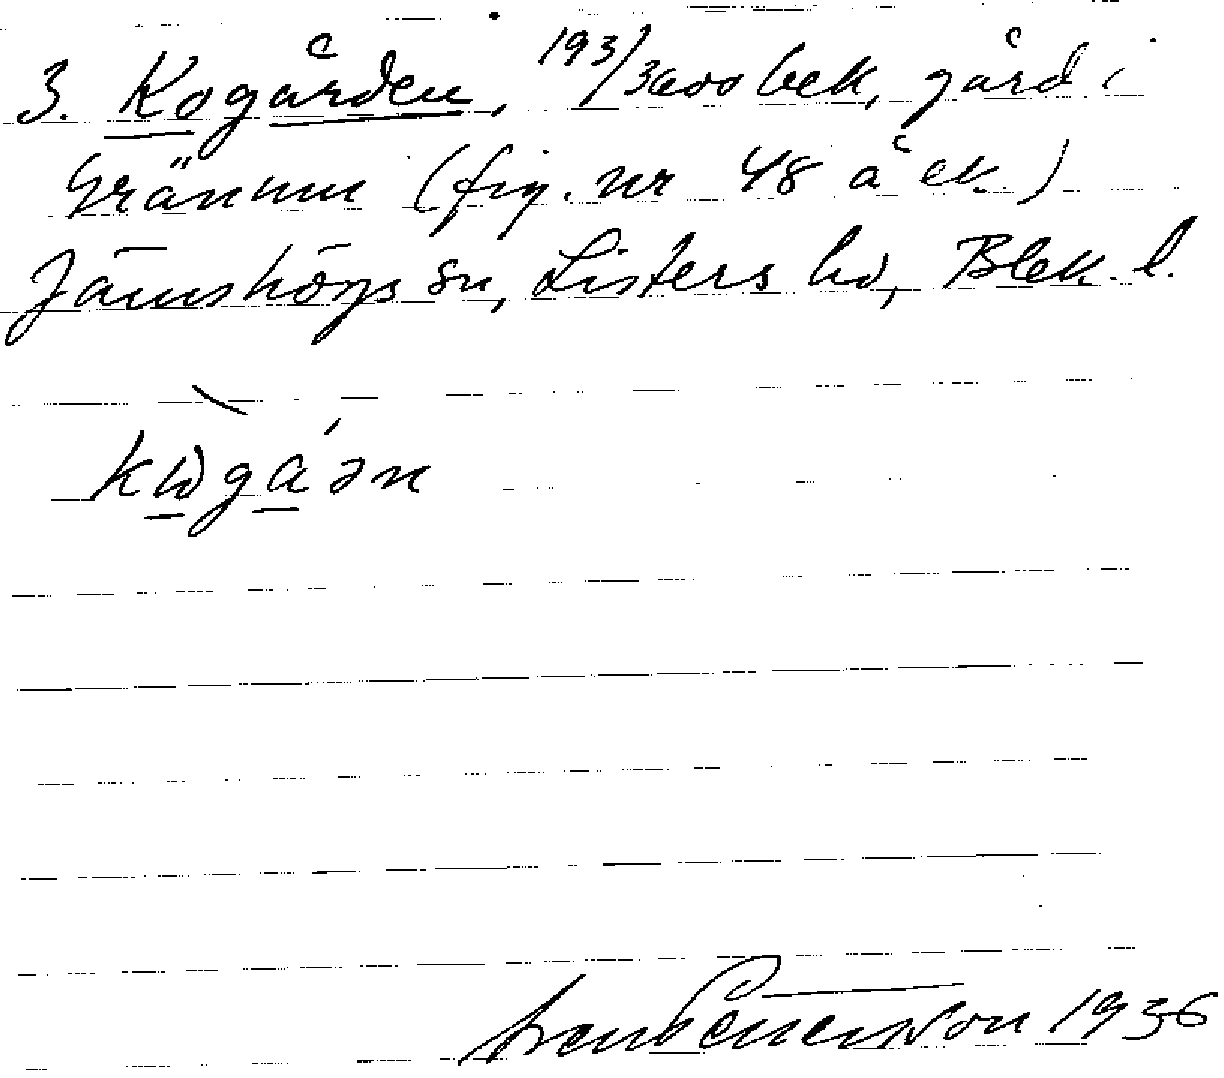 3. Kogården, 193/3600 bek, gård i
Gränum (fig. nr 48 å ek.)
Jämshögs sn, Listers hd, Blek. l.
kωgaən
1936